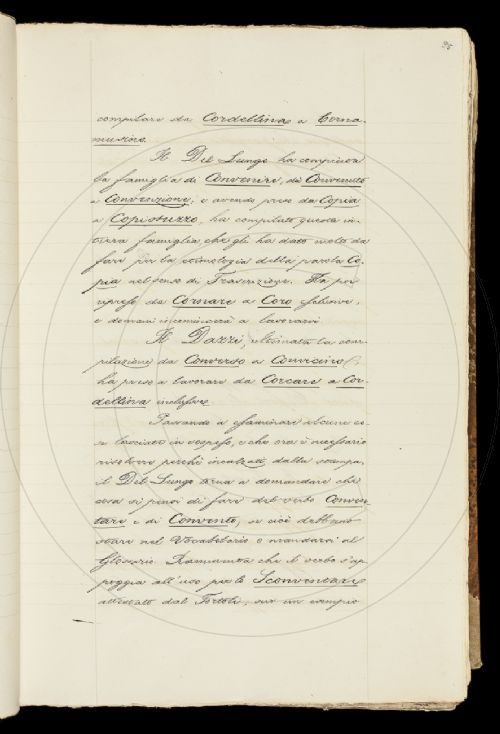 95
compilare da Cordellina a Corna-
musine.
Il Del Lungo ha compiuta
la famiglia di Convenire, di Convenuto
e Convenzione, e avendo preso da Copia
a Copistuzzo, ha compilato questa in-
tiera famiglia che gli ha dato molto da
fare per la etimologia della parola Co-
pia nel senso di Trascrizione. Ha poi
ripreso da Cornare a Coro esclusive,
e domani incomincerà a lavorarvi.
Il Dazzi, ultimata la com-
pilazione da Converso a
ha preso a lavorare da Corcare a Cor-
dellina inclusive.
Passando a esaminare alcune co-
se lasciate in sospeso, e che ora è necessario
risolvere perchè incalzati dalla stampa,
il Del Lungo torna a domandare che
cosa si pensi di fare del verbo Conven-
tare e di Convento, se cioè debbano
stare nel Vocabolario o mandarsi al
Glossario. Rammenta che il verbo s'ap-
poggia all'uso per lo Sconventare
attestato dal Tortoli, sur un esempio